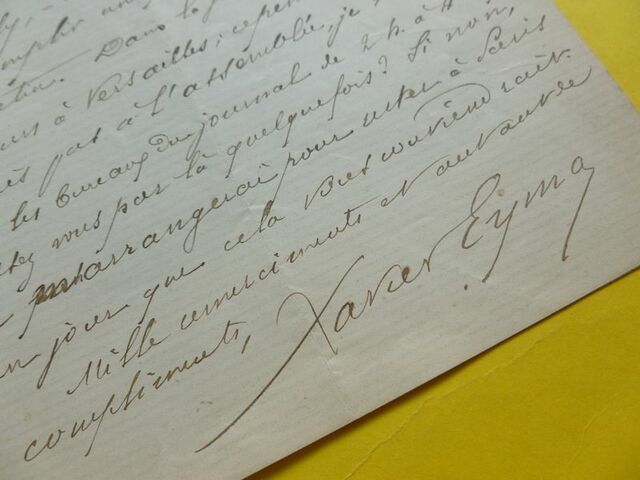 mplir un
Dans la j
à Versailles; cepen
pas à l'assemblée, je
les bureaux du journal de 2 h. à 4
vous par là quelquefois? Si non,
m'arrangerai pour rester à Paris
un jour que cela vous conviendrait.
Mille remerciments et autant de
compliments,
Xavier Eyma